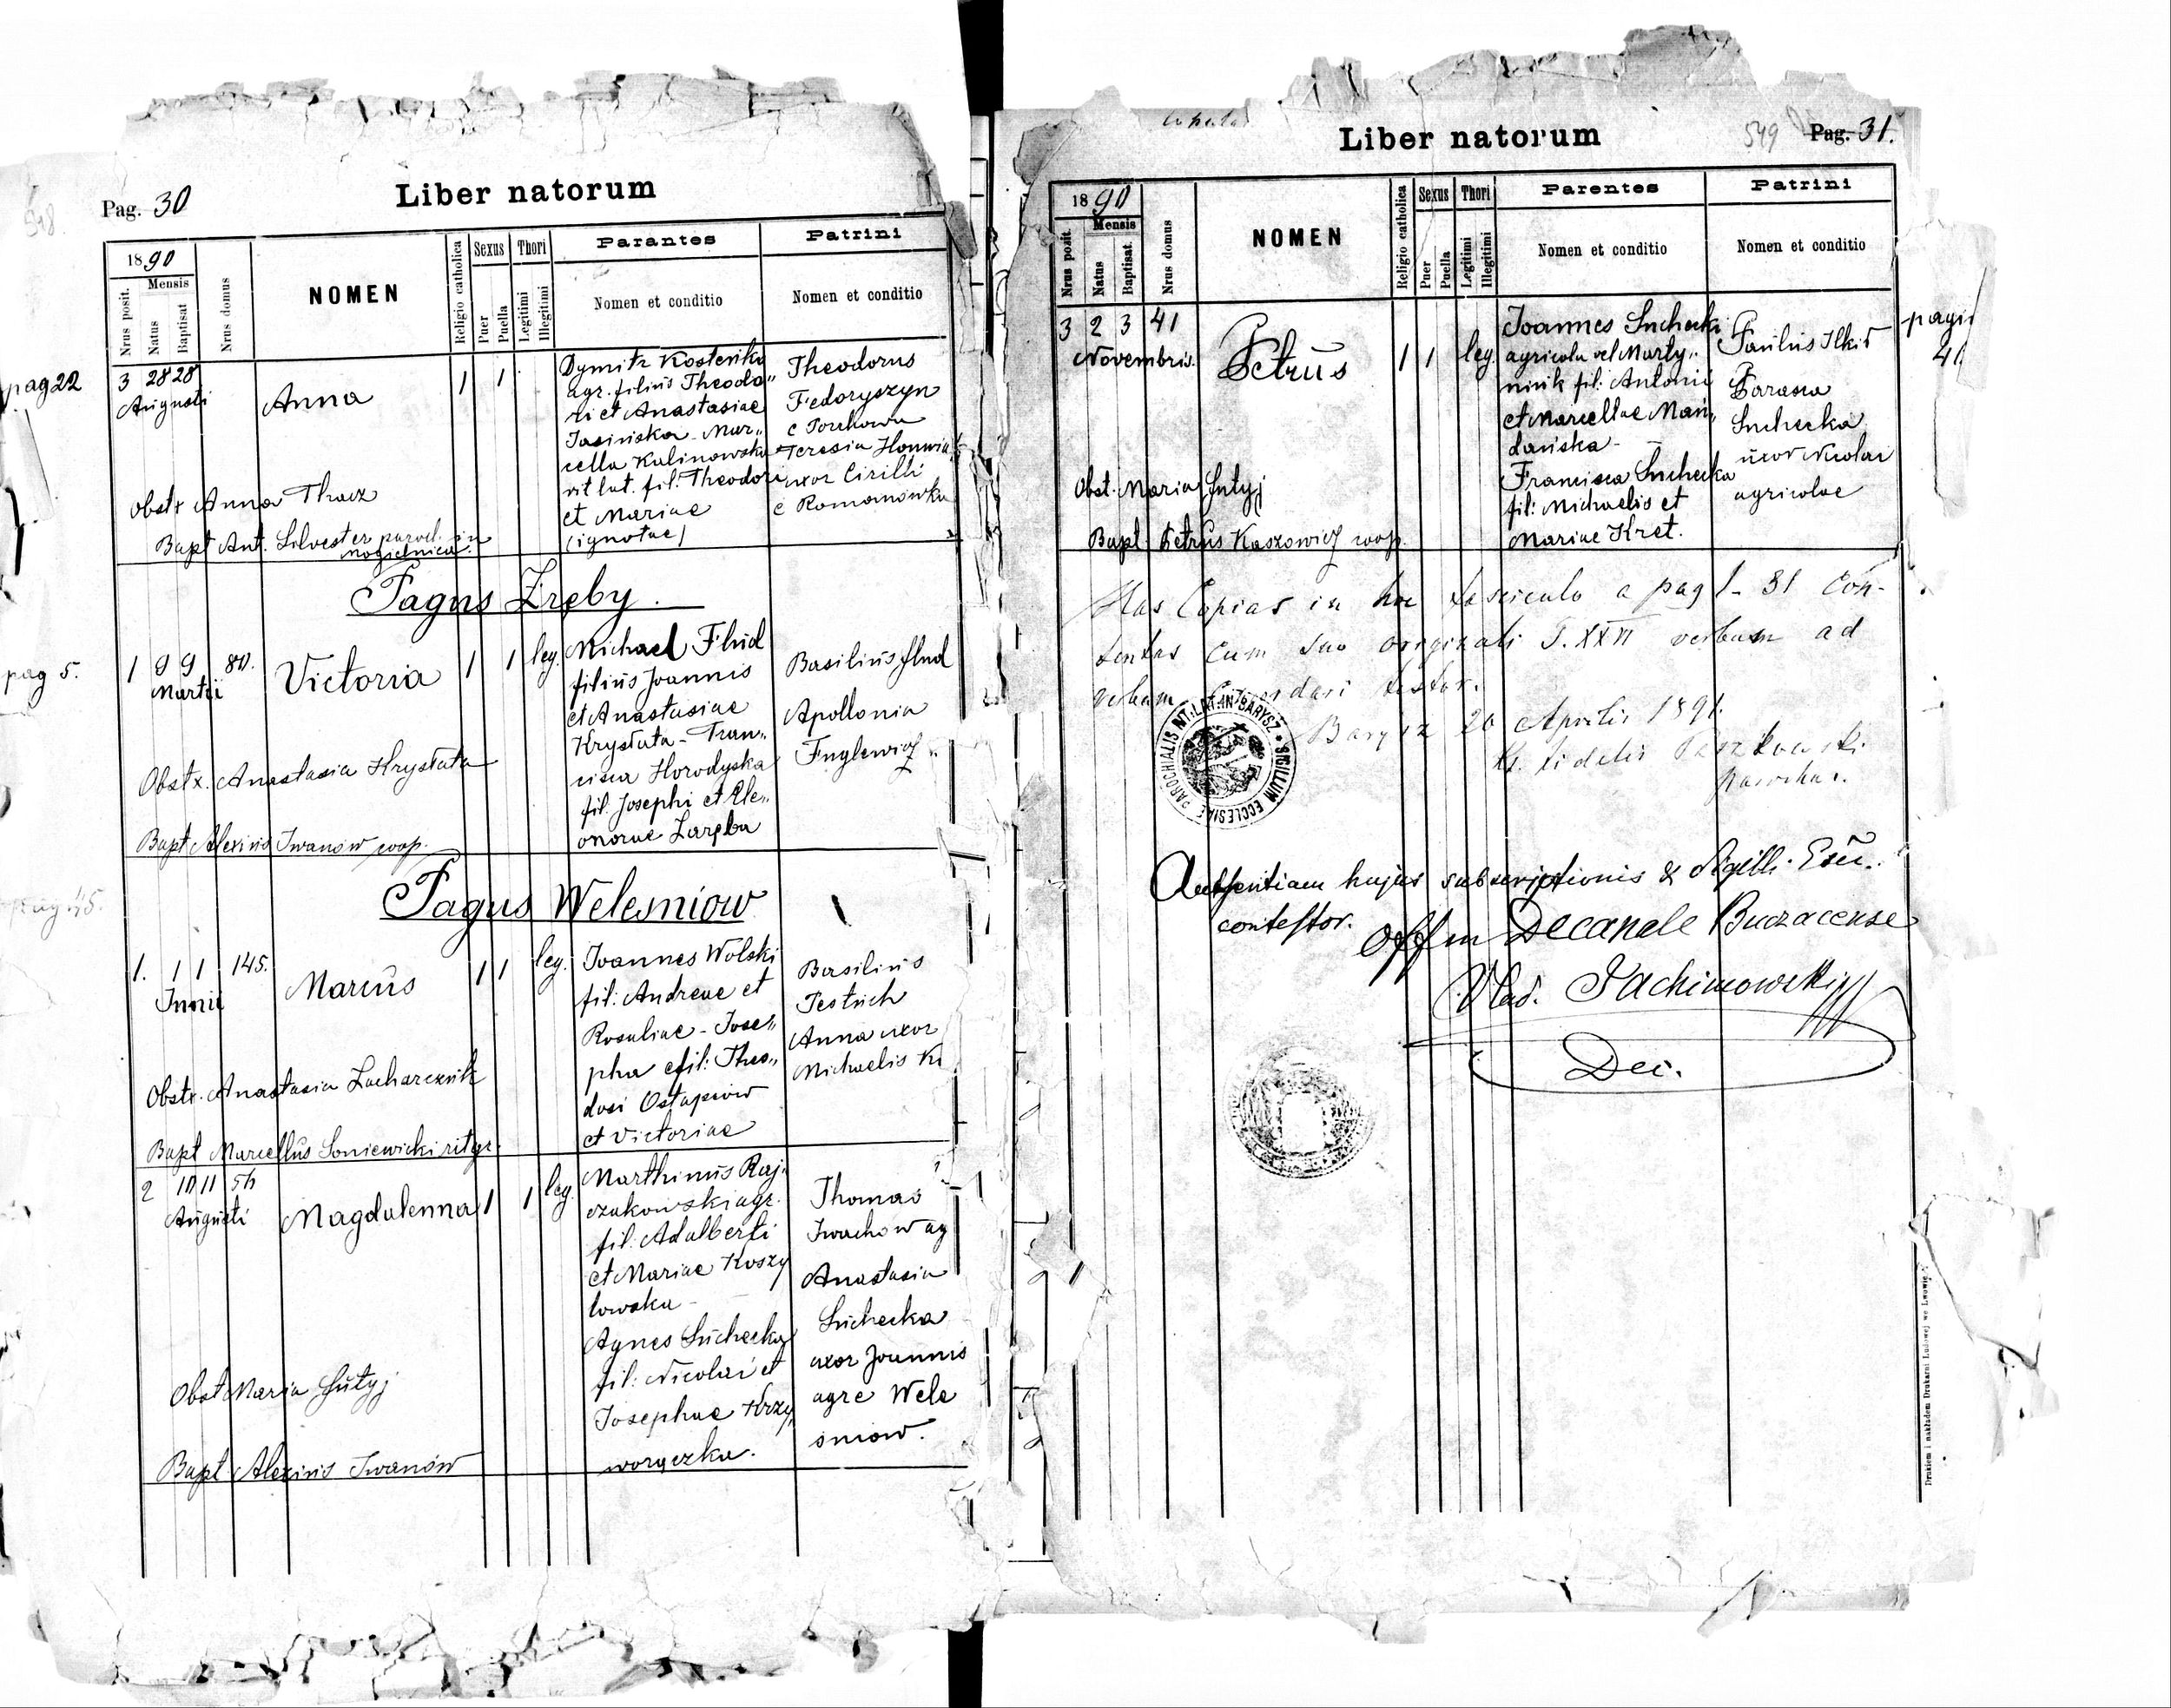 Pag. 30
Liber natorum
1890
Mensis
Nrus posit.
Natus
Baptisat
Nrus domus
NOMEN
Religio catholica
Sexus
Puer
Puella
Thori
Legitimi
Illegitimi
Parantes
Nomen et conditio
Patrini
Nomen et conditio
pag 22
3 28 28
Augusti
Anna
1 1
Dymitr
agr. filius Theodo„
ri et Anastasiae
Jasińska - Mar„
cella Kalinowska
rit lat. fil. Theodori
et Mariae
(ignotae)
Theodorus
Fedoryszyn
Teresia
uxor Cirilli
e Romanówka
Obstr Anna Tkacz
Bapt Ant. Silvester paroch. in
Pagus Zręby.
pag 5.
1 9 9 80.
Martii
Victoria
1 1 leg.
Michael Flud
filius Joannis
et Anastasiae
Krystata - Fran„
cisca Horodyska
fil. Josephi et Ele„
onorae Zaręba
Basilius Flud
Apollonia
Obstx. Anastasia Krystata
Bapt Alexius Iwanów coop.
Pagus Welesniow
1. 1 1 145.
Junii
Marcus
1 1 leg.
Joannes Wolski
fil: Andreae et
Rosaliae - Jose„
pha fil: Theo„
dosi Ostapiow
et Victoriae
Basilius
Anna uxor
Michaelis
Obstr. Anastasia Zacharczuk
Bapt Marcellus Soniewicki rit gr.
2 10 11 56
Augusti
Magdalenna
1 1 leg.
Marthinus Raj„
czakowski agr.
fil: Adalberti
et Mariae Koszy
lowska -
Agnes Suchecka
fil: Nicolai et
Josephae Krzy„
woręczka.
Thomas
Iwachow ag
Anastasia
Suchecka
uxor Joannis
agre Wele
sniow.
Obst Maria Gutyj
Bapt Alexius Iwanów
Liber natorum
549
Pag. 31.
1890
Mensis
Nrus posit.
Natus
Baptisat.
Nrus domus
NOMEN
Religio catholica
Sexus
Puer
Puella
Thori
Legitimi
Illegitimi
Parentes
Nomen et conditio
Patrini
Nomen et conditio
3 2 3 41
Novembris.
Petrus
1 1 leg.
Joannes Suchecki
agricola vel Marty„
niuk fil: Antonii
et Marcellae Mań„
dańska -
Francisca Suchecka
fil: Michaelis et
Mariae Kret.
Paulus Ilkiw
Parasia
Suchecka
uxor Nicolai
agricolae
Obst. Maria Gutyj
Bapt Petrus Kaszowicz coop.
Has Copias in hoc fasciculo a pag 1 - 31 Con-
tentas cum suo originali T. XXII verbum ad
verbum concordari testor.
Barysz 20 Aprilis 1891.
X. Fidelis Paszkowski
Parochus.
SIGILLUM ECCLESIAE PAROCHIALIS RIT: LAT: IN BARYSZ
Authentiam hujus subscriptionis & Sigilli
contestor.
Offm Decanale Buczacense
Vlad. Jachimowski
Dec.
Drukiem i nakładem Drukarni Ludowej we Lwowie.